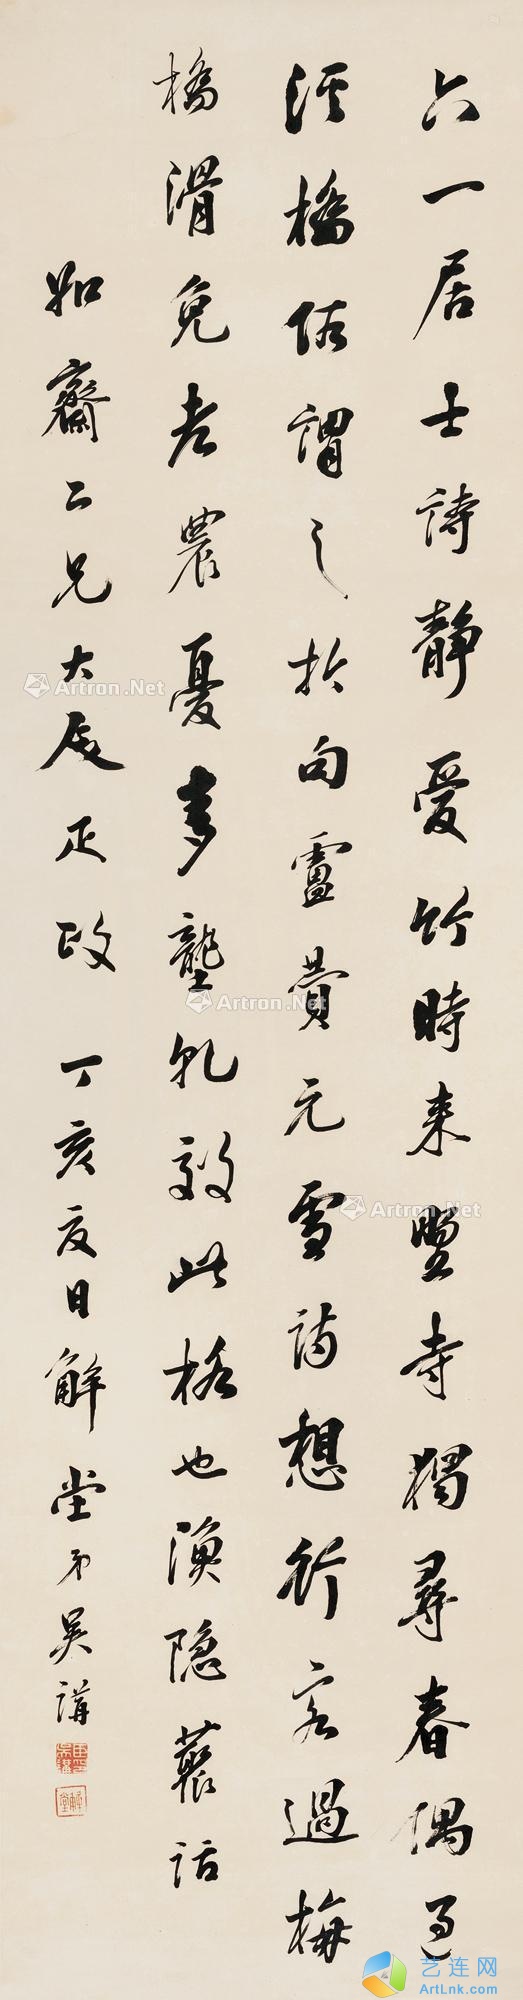 六一居士詩靜愛竹時来野寺獨尋春偶過
溪橋俗謂之折句盧贊元雪詩想行客過梅
橋滑免老農憂麥壟乹效此格也漁隱叢話
如齋二兄大人正政 丁亥夏日解堂弟吴講
Artron.Net
Artron.Net
Artron.Net
艺连网
ArtLnk.com